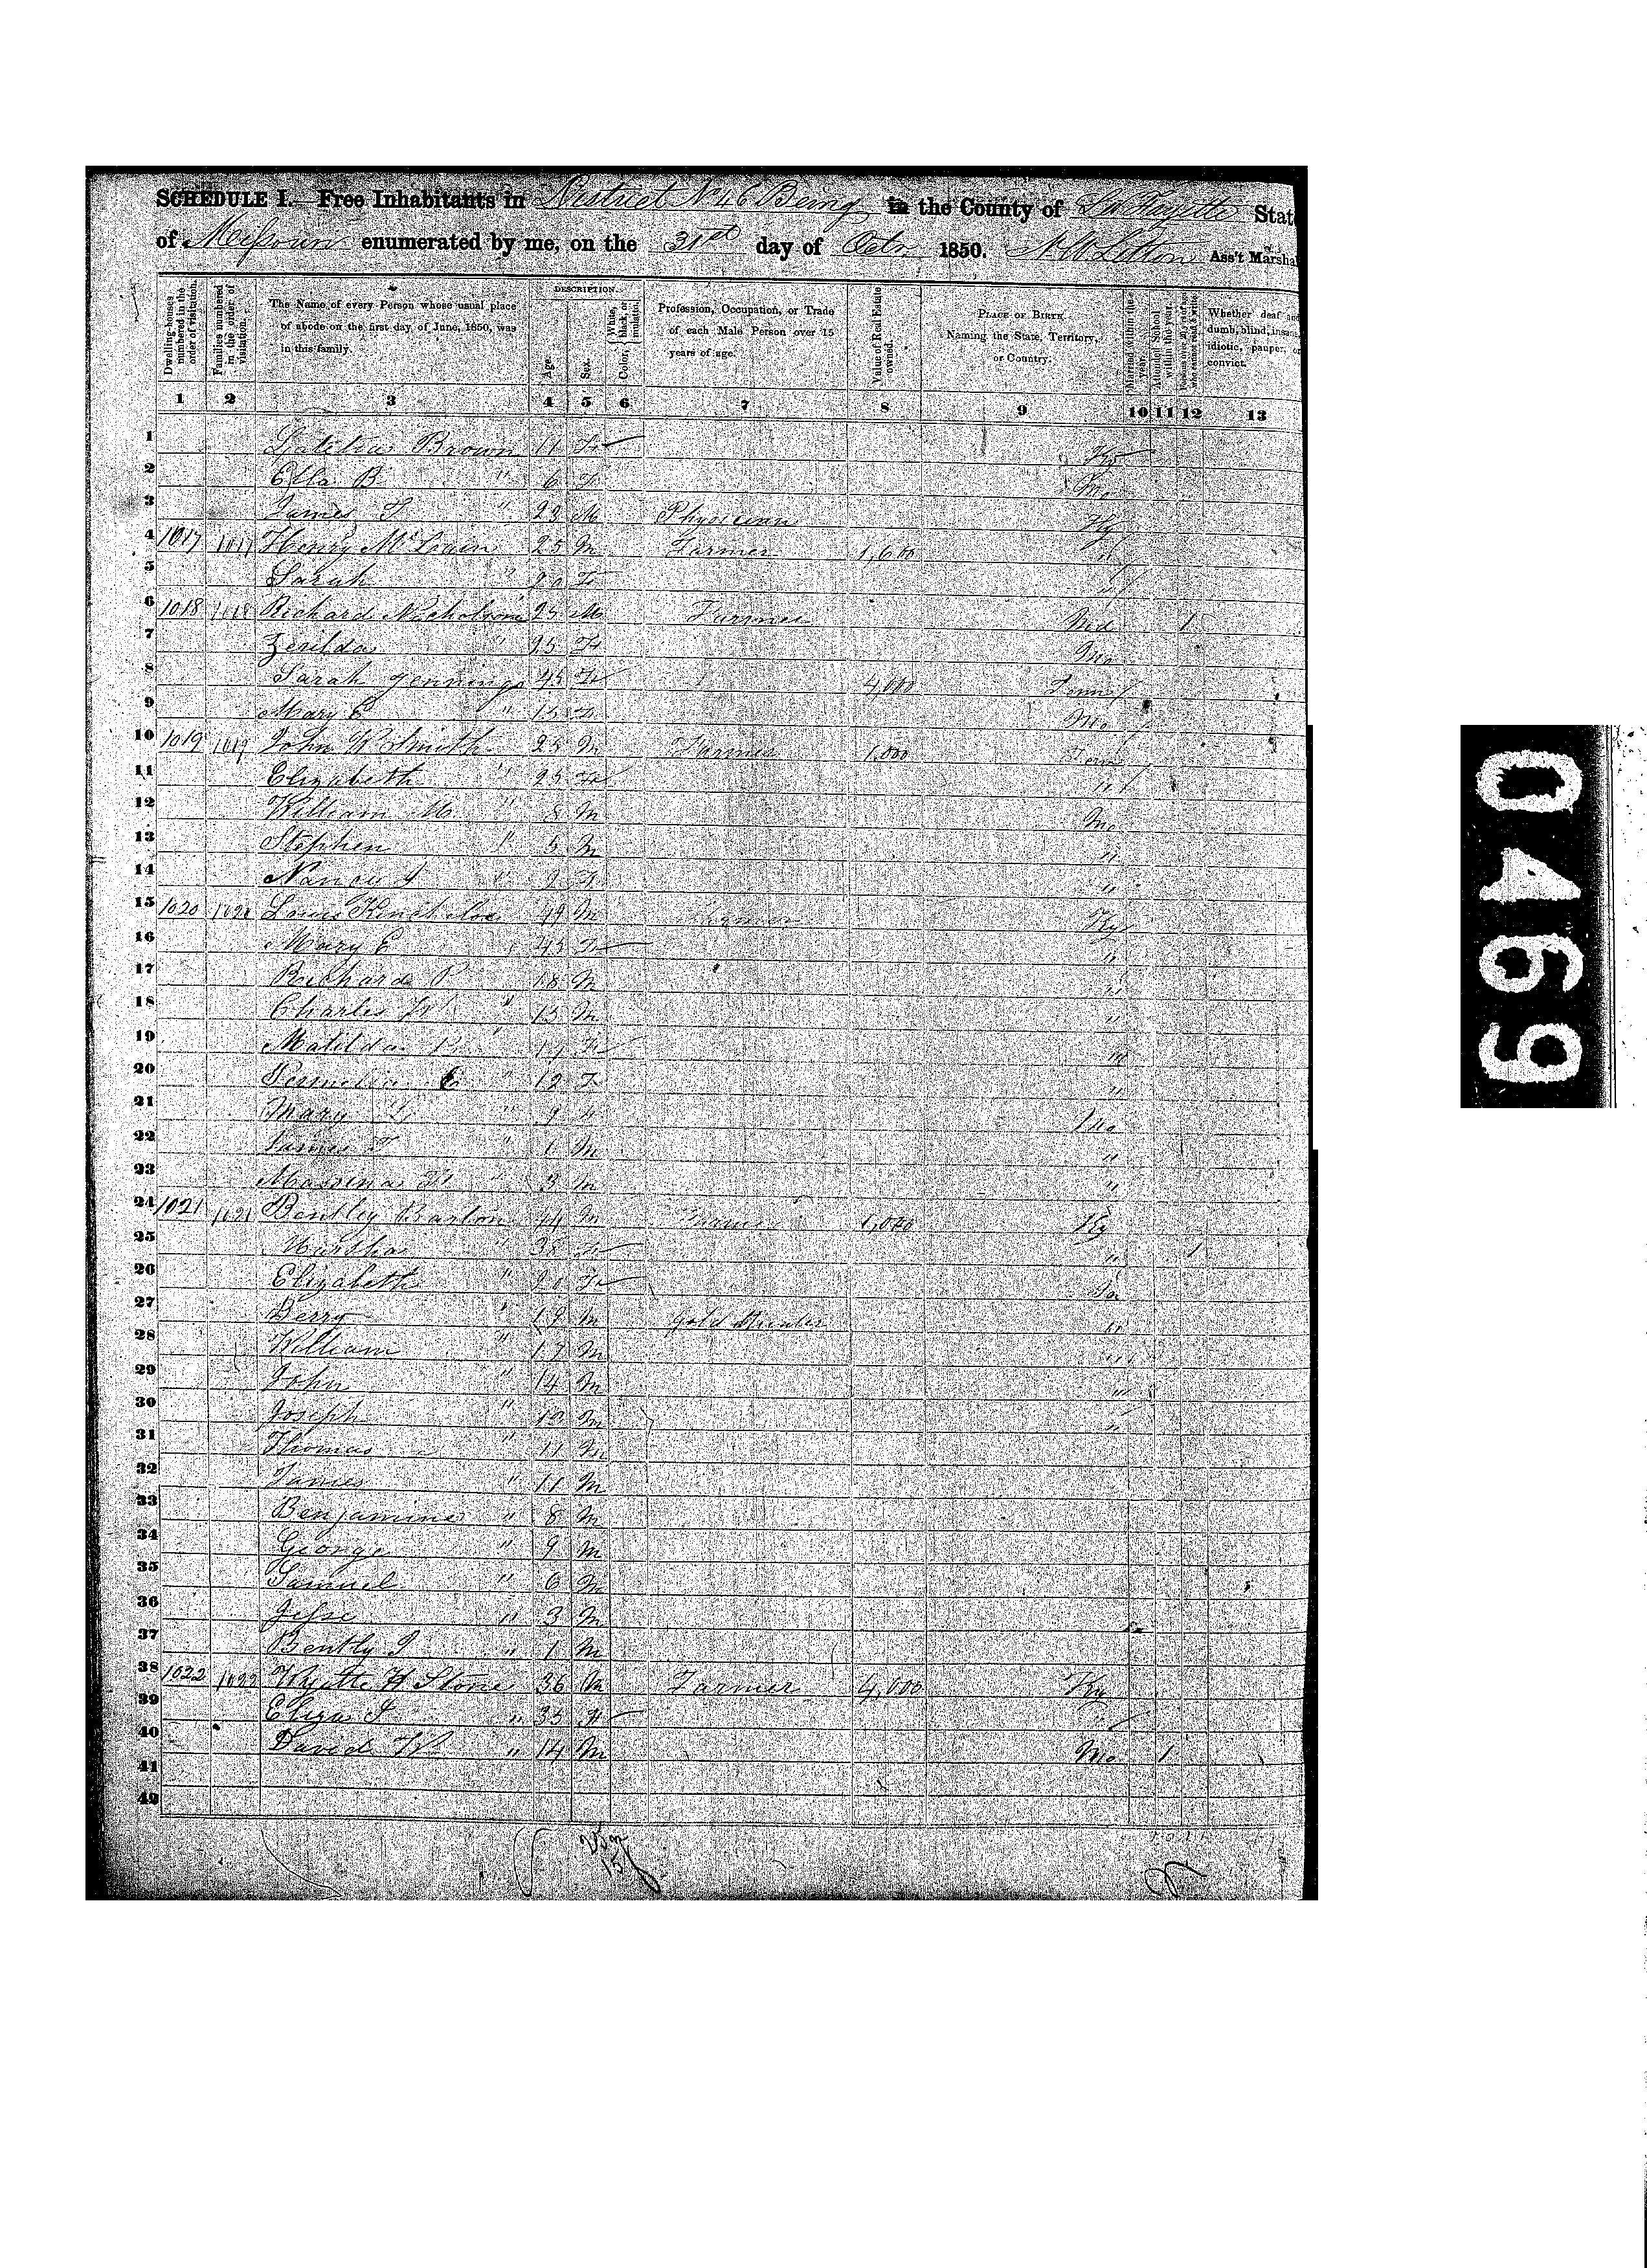 SCHEDULE I. Free Inhabitants in District No 46 Being in the County of La Fayette State
of Missouri enumerated by me, on the 31st day of Octr 1850. Ass't Marshal
Dwelling-houses numbered in the order of visitation.
Families numbered in the order of visitation.
The Name of every Person whose usual place of abode on the first day of June, 1850, was in this family.
DESCRIPTION.
Age.
Sex.
Color, White, black, or mulatto.
Profession, Occupation, or Trade of each Male Person over 15 years of age.
Value of Real Estate owned.
PLACE OF BIRTH. Naming the State, Territory, or Country.
Married within the year.
Attended School within the year.
Persons over 20 y'rs of age who cannot read & write
Whether deaf and dumb, blind, insane, idiotic, pauper, or convict.
1 2 3 4 5 6 7 8 9 10 11 12 13
1 Latitia Brown 11 F Ky
2 Ella B " 6 F Mo
3 James " 23 M Physician Ky
4 1017 1017 Henry 25 M Farmer 1,600 "
5 Sarah " 20 F "
6 1018 1018 Richard Nicholson 25 M Farmer 1
7 Zerilda " 25 F Mo
8 Sarah Jennings 45 F 4,000 Tenn
9 Mary E " 15 F Mo
10 1019 1019 John Smith 25 M Farmer 1,000 Tenn
11 Elizabeth " 25 F "
12 William " 8 M Mo
13 Stephen " 5 M "
14 Nancy " 2 F "
15 1020 1020 Louis Kincheloe 49 M Farmer Ky
16 Mary E " 45 F "
17 Richard P 18 M "
18 Charles W " 15 M "
19 Matilda " 14 F "
20 Permelia " 12 F "
21 Mary " 9 F Mo
22 James T " 1 M "
23 " 3 M "
24 1021 1021 Bentley Barton 44 M Farmer 1,000 Ky
25 " 38 F " 1
26 Elizabeth " 20 F
27 Berry " 19 M Gold Hunter "
28 William " 17 M "
29 John " 14 M "
30 Joseph " M "
31 Thomas " 11 M
32 James " 11 M
33 Benjamine " 8 M
34 George " 9 M
35 Samuel " 6 M
36 Jesse " 3 M
37 Bently J " 1 M
38 1022 1022 Wyatte H Stone 36 M Farmer 4,000 Ky
39 Eliza J " 35 F "
40 David W " 14 M Mo 1
41
42
0469